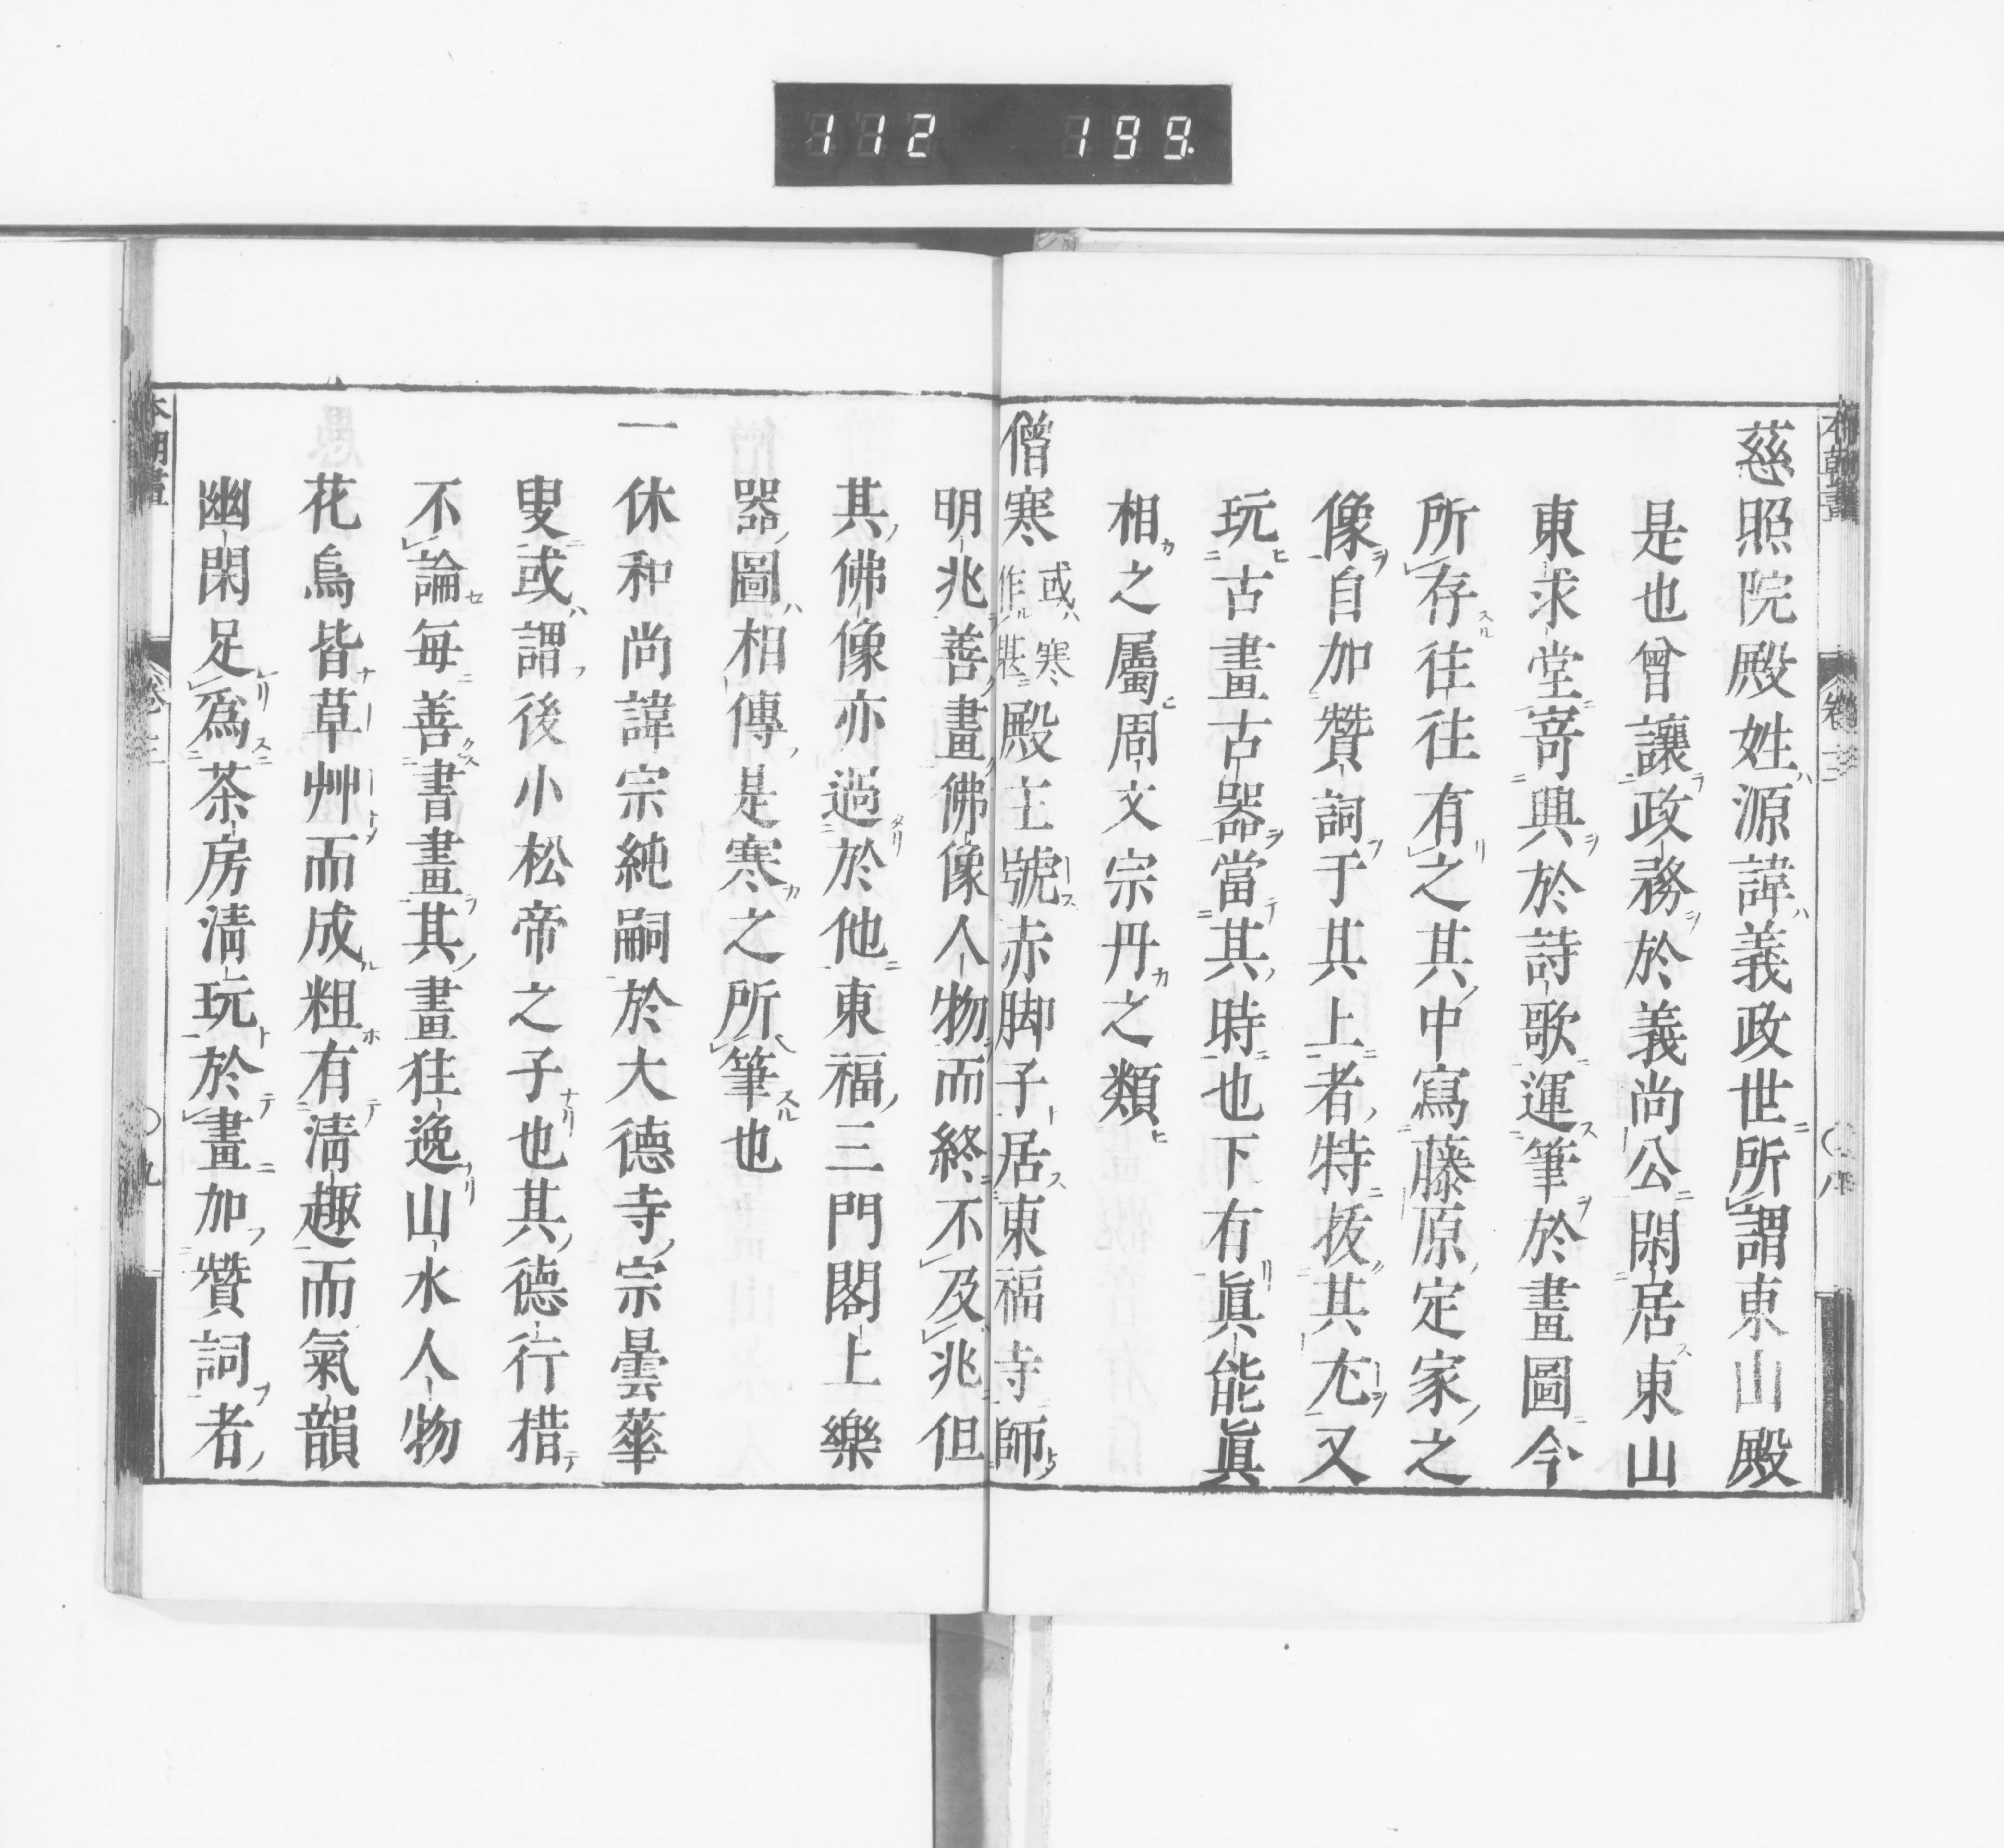 112 199.
慈照院殿姓源諱義政世所謂東山殿
是也曾讓政務於義尚公閑居東山
東求堂寄興於詩歌運筆於畫圖今
所存往往有之其中寫藤原定家之
像自加贊詞于其上者特拔其尤又
玩古畫古器當其時也下有眞能眞
相之屬周文宗丹之類
僧寒或寒作㙤殿主號赤脚子居東福寺師
明兆善畫佛像人物而終不及兆但
其佛像亦過於他東福三門閣上樂
器圖相傳是寒之所筆也
一休和尚諱宗純嗣於大德寺宗曇華
叟或謂後小松帝之子也其德行措
不論毎善書畫其畫徃逸山水人物
花鳥皆草艸而成粗有淸趣而氣韻
幽閑足爲茶房淸玩於畫加贊詞者
本朝畫 卷三 〇九